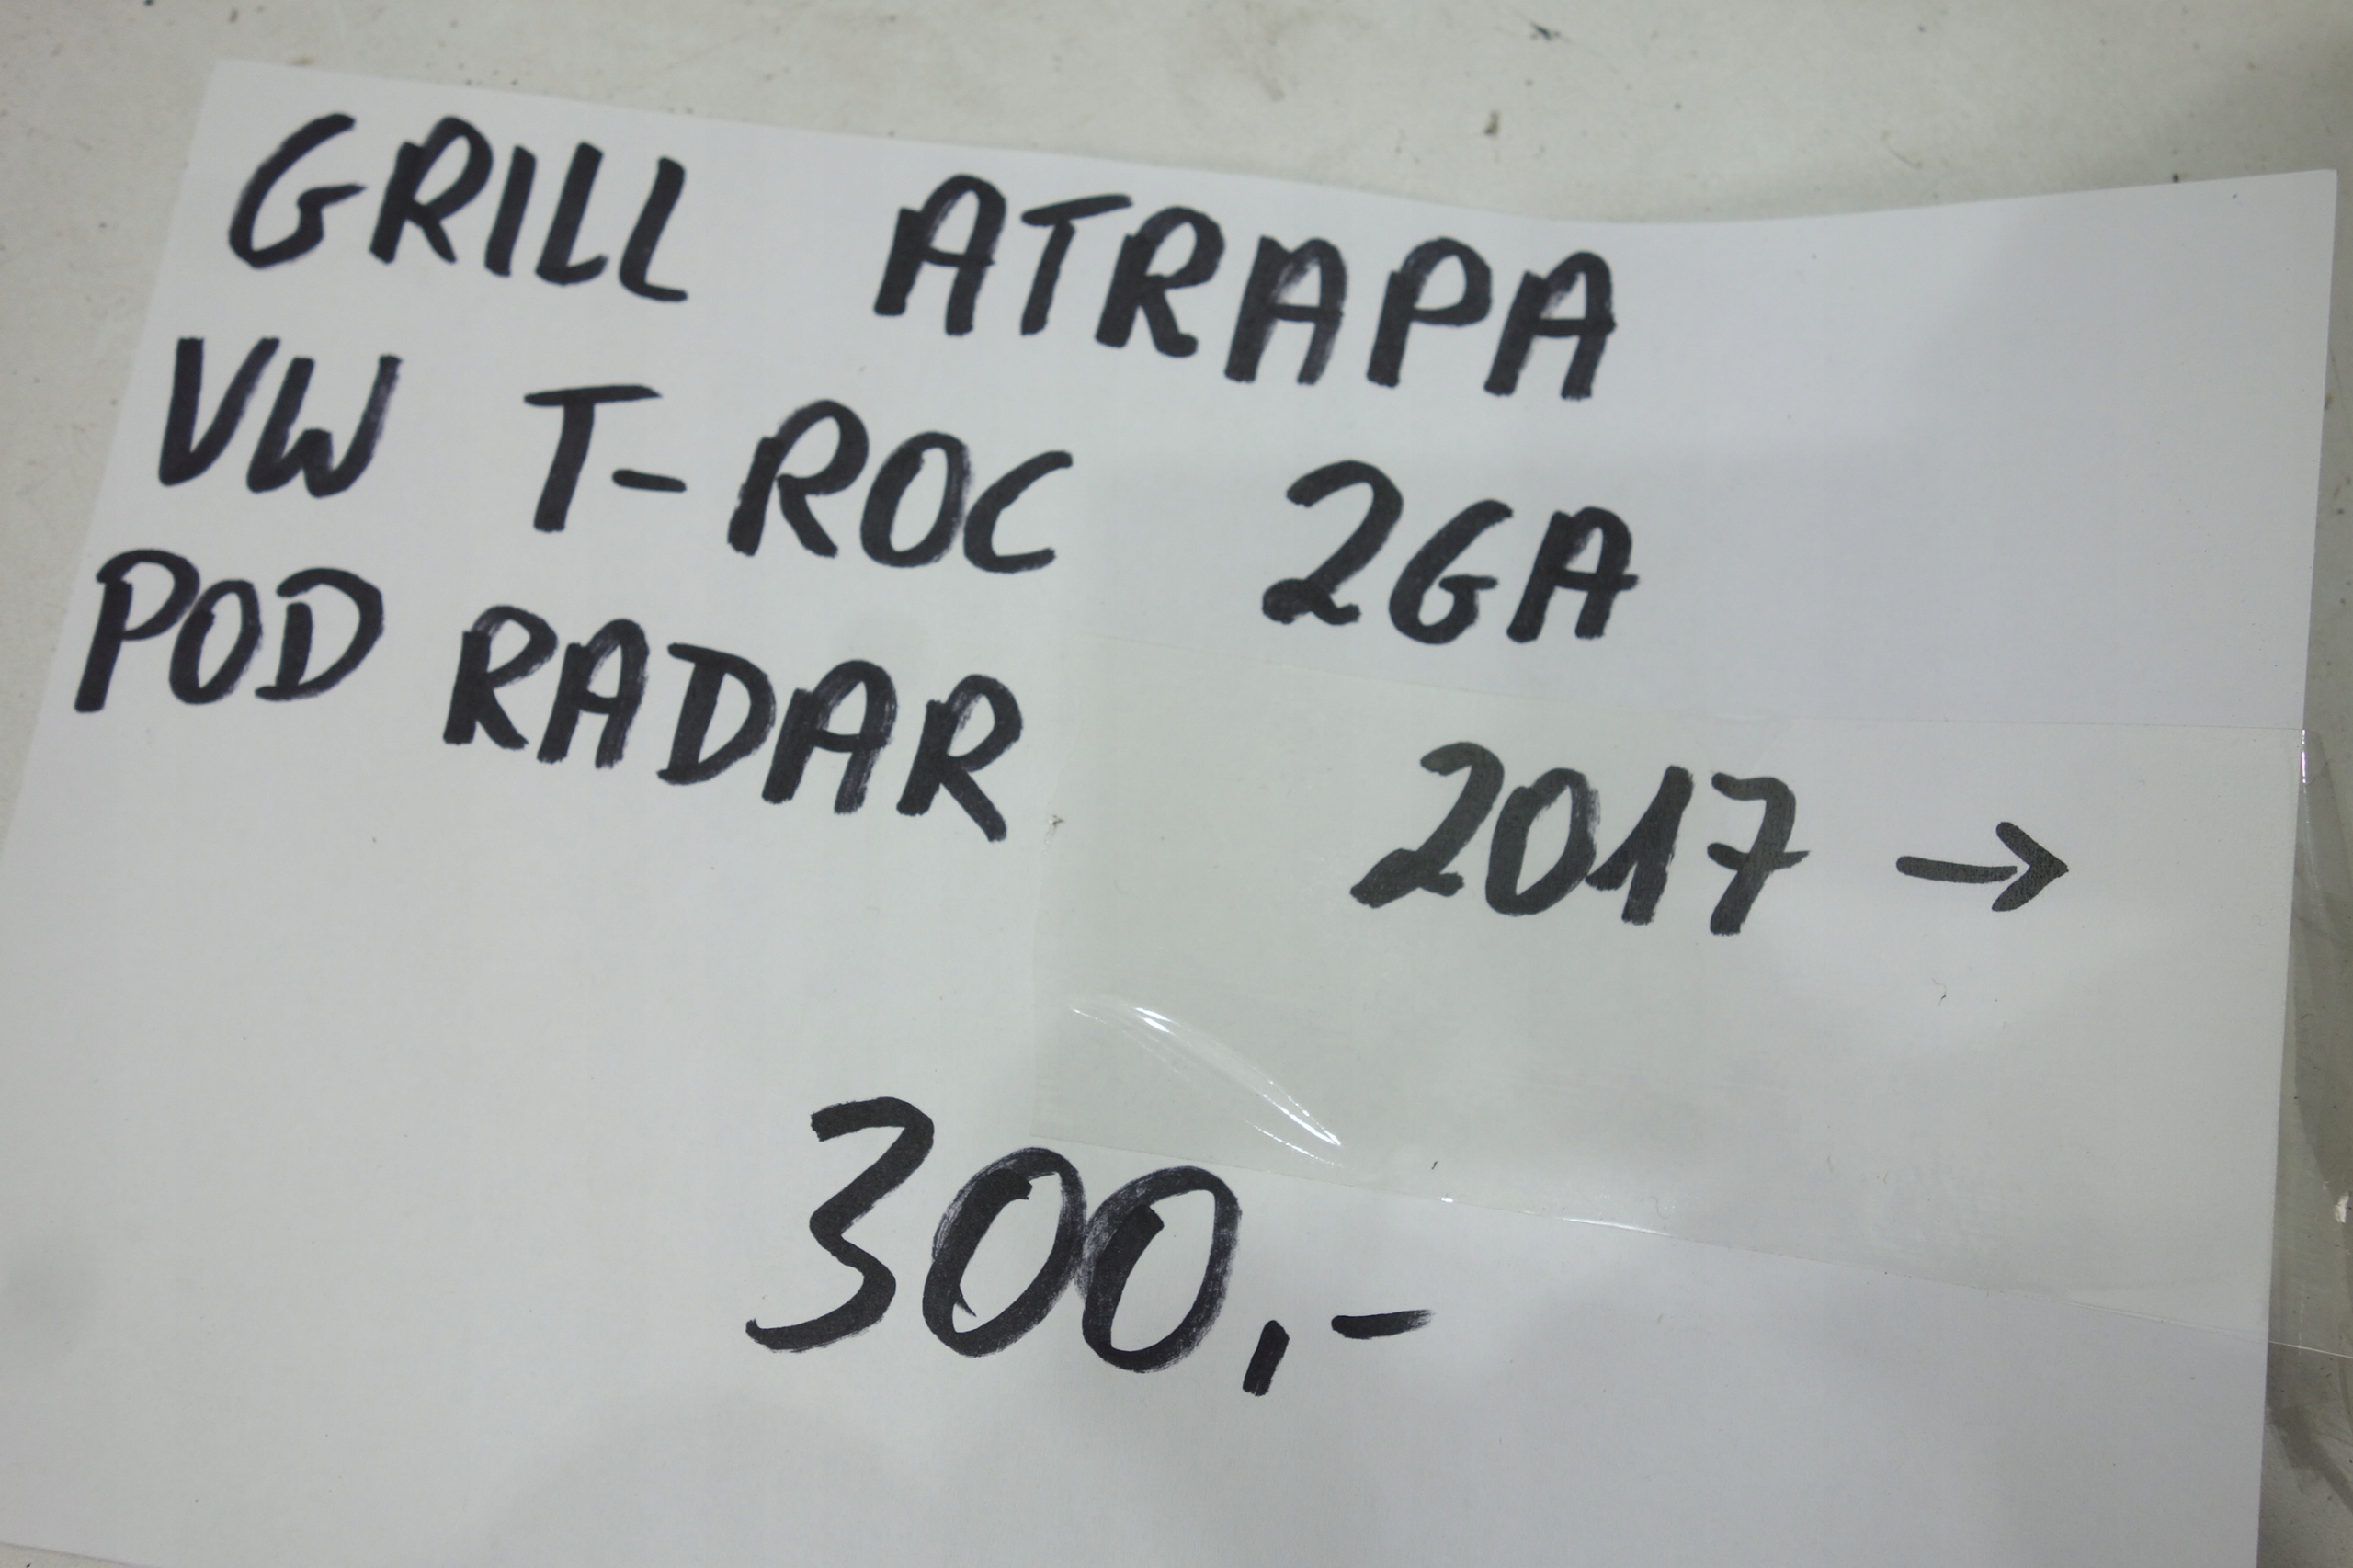 GRILL ATRAPA
VW T-ROC 2GA
POD RADAR 2017 →
300,-